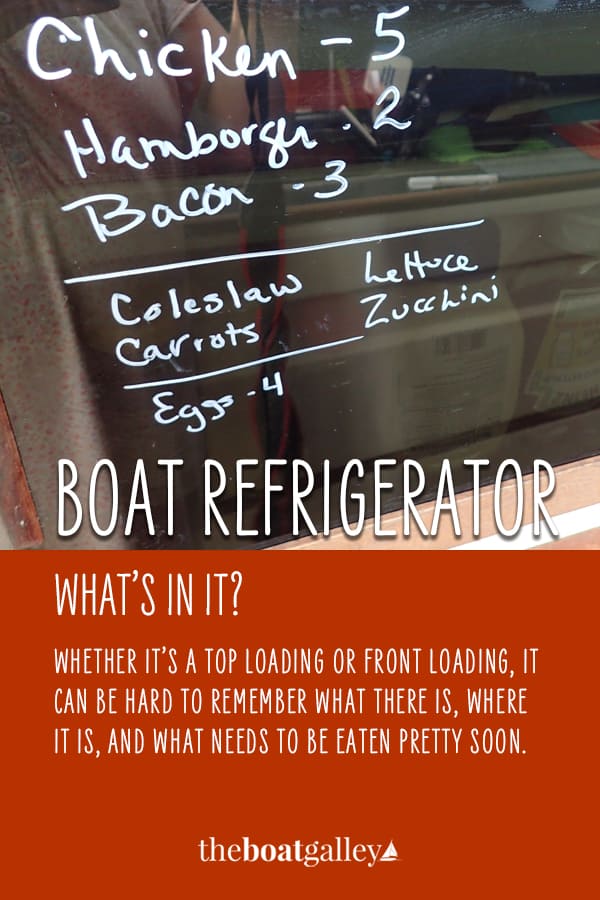 Chicken - 5
Hamborger - 2
Bacon - 3
Coleslaw Lettuce
Carrots Zucchini
Eggs - 4
BOAT REFRIGERATOR
WHAT'S IN IT?
WHETHER IT'S A TOP LOADING OR FRONT LOADING, IT
CAN BE HARD TO REMEMBER WHAT THERE IS, WHERE
IT IS, AND WHAT NEEDS TO BE EATEN PRETTY SOON.
theboatgalley